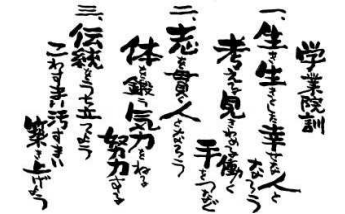 学業院訓
一、生き生きとした幸せな人と
なろう
考えを見きわめる働く
手をつなぐ
二、志を貫く人となろう
体を鍛え気力をねる
努力する
三、伝統をうち立つよう
こわすまい汚すまい
築き上げよう